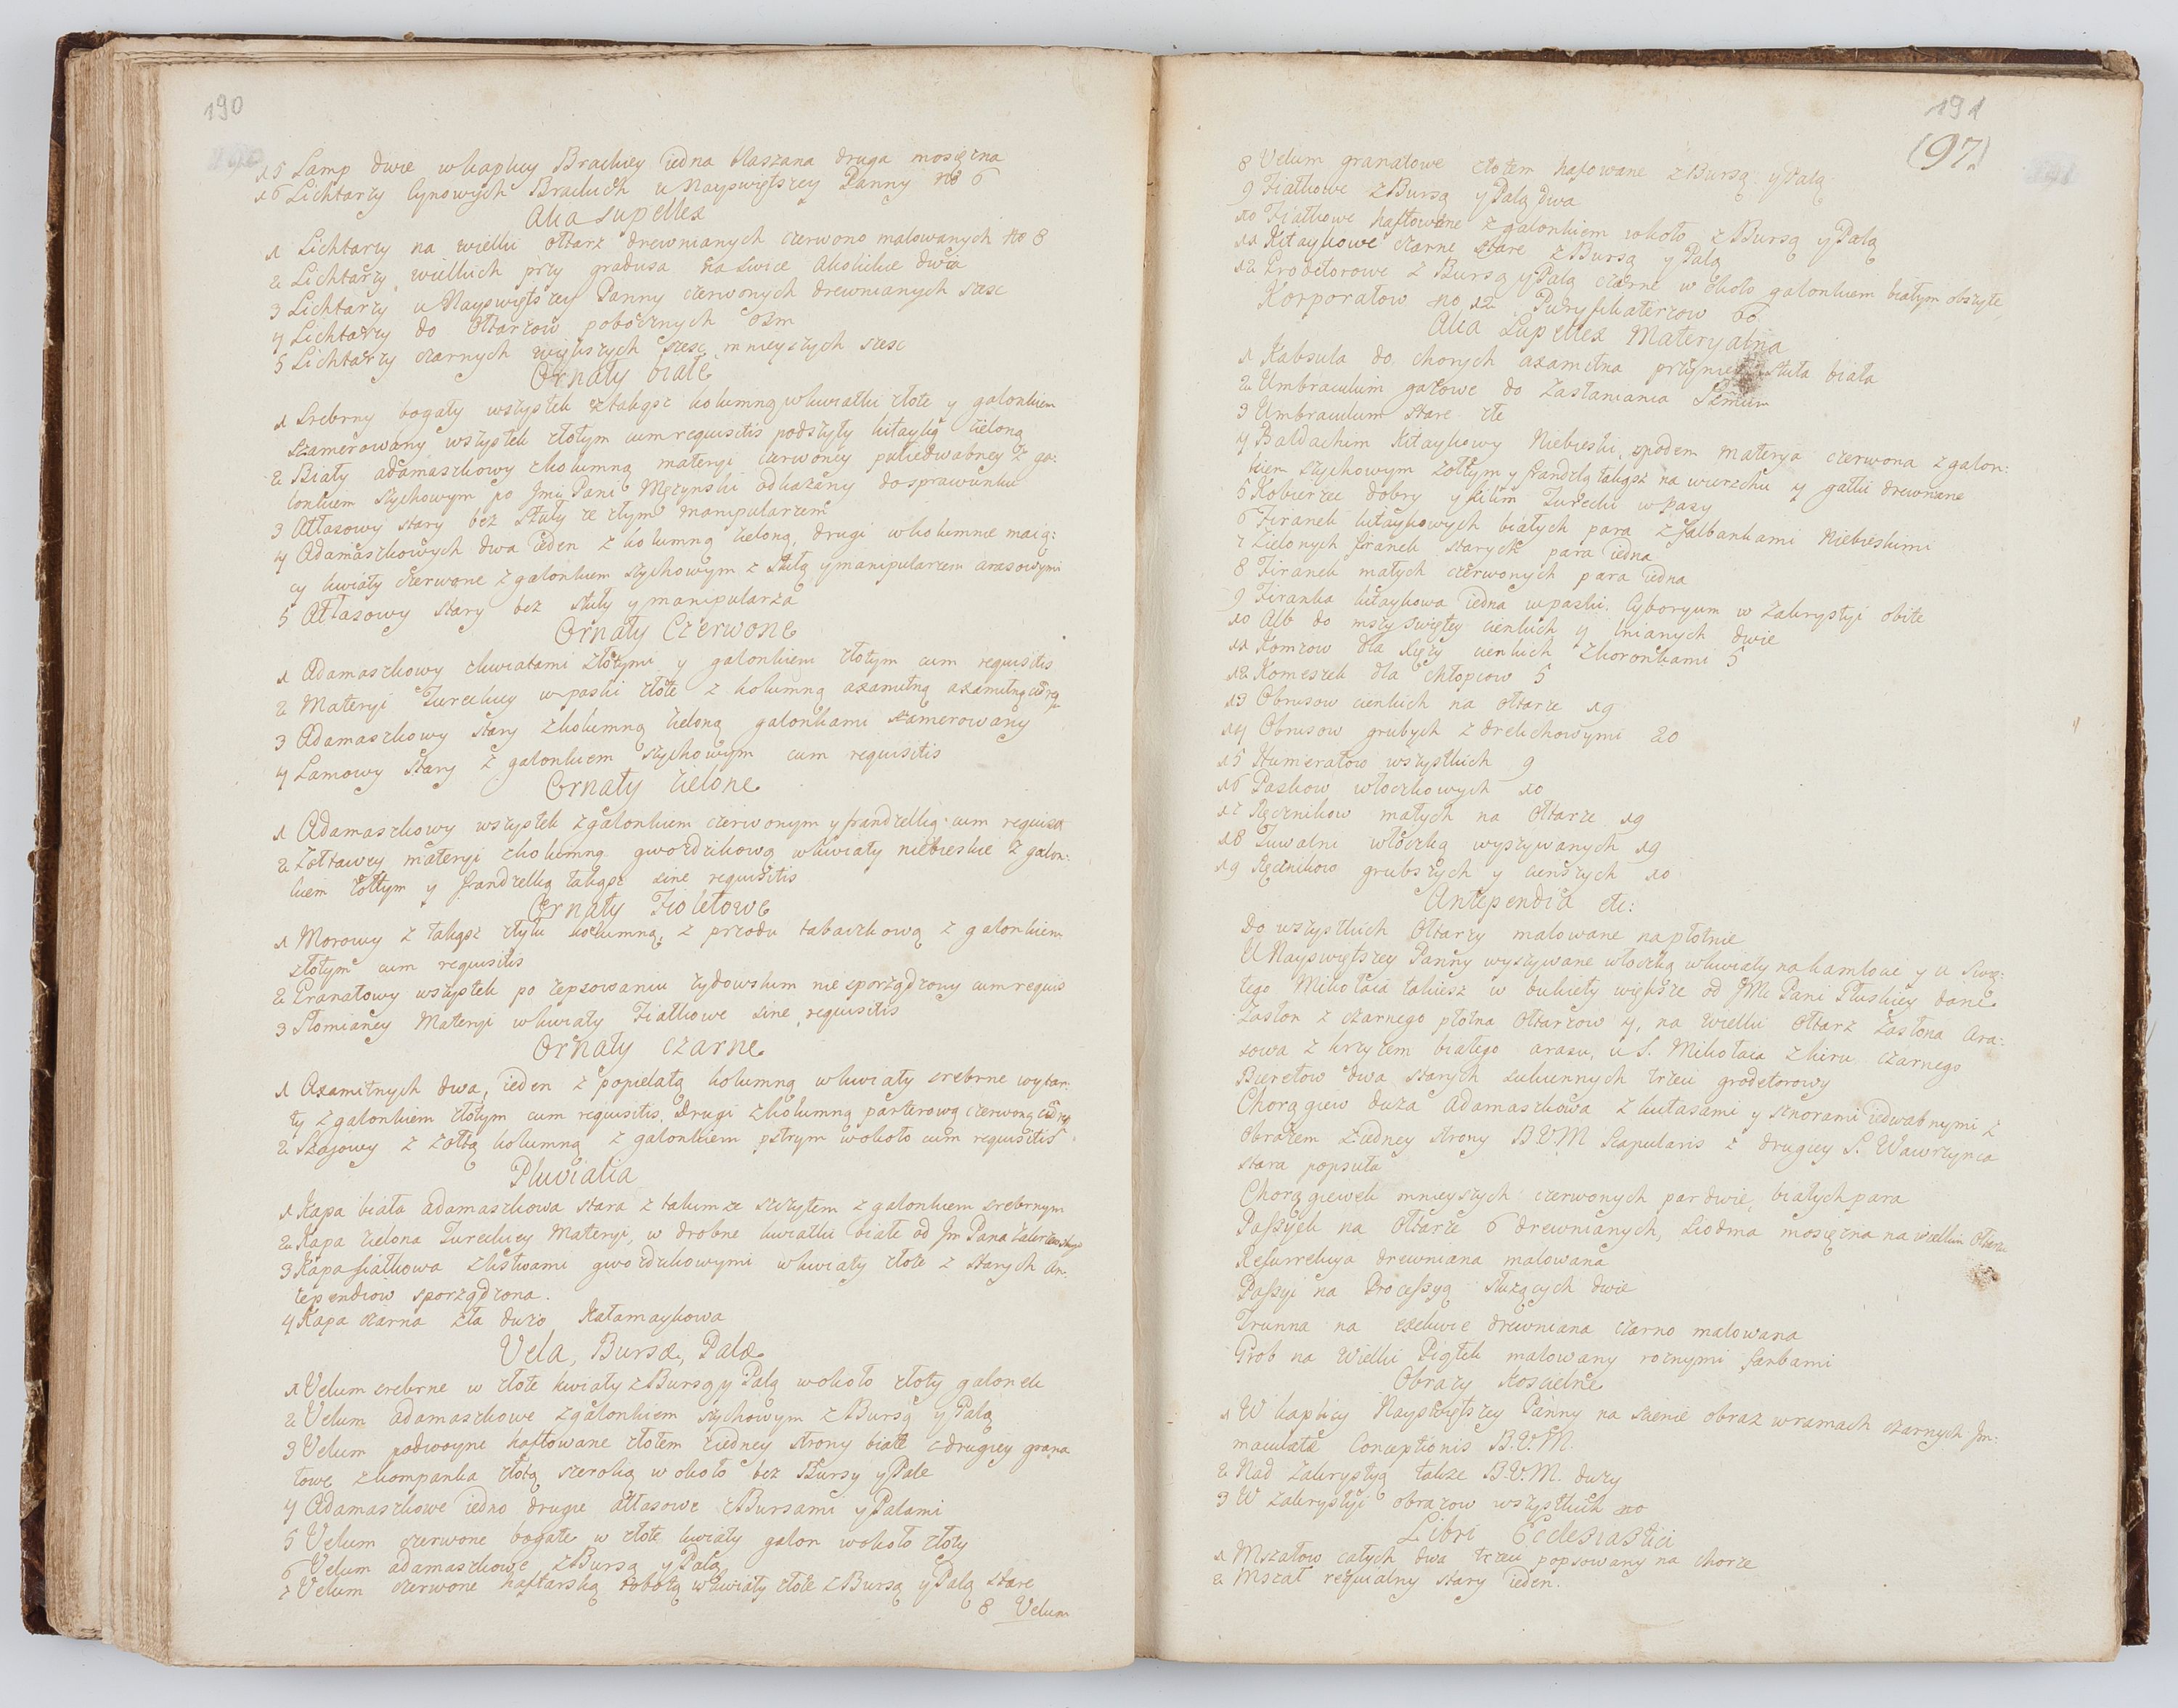 190
15 Lamp dwie w kaplicy Brackiey iedna blaszana druga mosięzna
16 Lichtarzy Cynowych Brackich u Nayswiętszey Panny No 6
Alia supellex
1 Lichtarzy na wielki ołtarz drewnianych czerwono malowanych No 8
2 Lichtarzy wielkich przy gradusa na swice Akolickie dwa
3 Lichtarzy u Nayswiętszey Panny czerwonych drewnianych szesc
4 Lichtarzy do Ołtarzow pobocznych osm
5 Lichtarzy czarnych większych szesc mnieyszych szesc
Ornaty białe
1 Srebrny bogaty wszystek z takąsz kolumną w kwiatki złote y galonkiem
szamerowany wszystek złotym cum requisitis podszyty kitayką zieloną
2 Biały adamaszkowy z kolumną materyi czerwoney puł iedwabney z ga:
lonkiem szychowym po Jmci Pani Męzynski odkazany do sprawunku
3 Atłasowy stary bez stuły ze złym manipularzem
4 Adamaszkowych dwa ieden z kolumną zieloną, drugi w kolumnie maią:
cy kwiaty czerwone z galonkiem szychowym z stułą y manipularzem arasowymi
5 Atłasowy stary bez stuły y manipularza
Ornaty Czerwone
1 Adamaszkowy z kwiatami złotymi y galonkiem złotym cum requisitis
2 Materyi Tureckiey w paski złote z kolumną axamitną axamitną cum req
3 Adamaszkowy stary z kolumną zieloną galonkami szamerowany
4 Lamowy stary z galonkiem szychowym cum requisitis
Ornaty zielone
1 Adamaszkowy wszystek z galonkiem czerwonym y frandzelką cum requisi
2 Zołtawey materyi z kolumną gwozdzikową w kwiaty niebieskie z galon:
kiem żółtym y frandzelką takąsz sine requisitis
Ornaty Fioletowe
1 Morowy z takąsz z tyłu kolumną, z przodu tabaczkową z galonkiem
złotym cum requisitis
2 Granatowy wszystek po zepsowaniu zydowskim nie sporządzony cum requis
3 Słomianey Materyi w kwiaty Fiałkowe sine requisitis
Ornaty czarne
1 Axamitnych dwa, ieden z popielatą kolumną w kwiaty srebrne wytar:
ty z galonkiem złotym cum requisitis, drugi z kolumną parterową czerwoną cum req
2 Szajowy z zołtą kolumną z galonkiem pstrym wokoło cum requisitis
Pluvialia
1 Kapa biała adamaszkowa stara z takim ze szczytem z galonkiem srebrnym
2 Kapa zielona Tureckiey Materyi, w drobne kwiatki białe od Jm Pana
3 Kapa fiałkowa z listwami gwozdzikowymi w kwiaty złote z starych An:
tepediow sporządzona.
4 Kapa czarna zła duzo Kałamaykowa
Vela, Bursæ, Palæ
1 Velum srebrne w złote kwiaty z Bursą y Palą wokoło złoty galonek
2 Velum adamaszkowe z galonkiem szychowym z Bursą y Palą
3 Velum podwoyne haftowane złotem z iedney strony białe z drugiey grana
towe z kompanka złotą szeroką w około bez Bursy y Pale
4 Adamaszkowe iedno drugie atłasowe z Bursami y Palami
5 Velum czerwone bogate w złote kwiaty galon wokoło złoty
6 Velum adamaszkowe z Bursą y Palą
7 Velum czerwone haftarską robotą w kwiaty złote z Bursą y Palą stare
8 Velum
191
(97.)
8 Velum granatowe złotem haftowane z Bursą y Palą
9 Fiałkowe z Bursą y Palą dwa
10 Fiałkowe haftowane z galonkiem wkoło z Bursą y Palą
11 Kitaykowe czarne stare z Bursą y Palą
12 Grodetorowe z Bursą y Palą czarne w około galonkiem białym obszyte
Korporałow No 12 Puryfikaterzow 66
Alia Supellex Materyalna
1 Kabsula do chorych axamitna przy niey stuła biała
2 Umbraculum gazowe do zasłaniania Ssmum
3 Umbraculum stare złe
4 Baldachim Kitaykowy Niebieski, spodem materya czerwona z galon:
kiem szychowym zołtym y frandzlą takąsz na wierzchu 4 gałki drewniane
5 Kobierzec dobry y kilim Turecki w pasy
6 Firanek kitaykowych białych para z falbankami Niebieskimi
7 Zielonych firanek starych para iedna
8 Firanek małych czerwonych para iedna
9 Firanka kitaykowa iedna w paski. Cyboryum w zakrystyi obite
10 Alb do mszy swiętey cienkich 4 lnianych dwie
11 Komzow dla Xięzy cienkich z koronkami 5
12 Komeszek dla chłopcow 5
13 Obrusow cienkich na ołtarze 19
14 Obrusow grubych z drelichowymi 20
15 Humerałow wszystkich 9
16 Paskow włoczkowych 10
17 Ręcznikow małych na Ołtarze 19
18 Tuwalni włoczką wyszywanych 19
19 Ręcznikow grubszych y cienszych 10
Antependia etc:
Do wszystkich Ołtarzy malowane na płotnie
U Nayswiętszey Panny wyszywane włoczką w kwiaty na kamłocie y u Swię:
tego Mikołaia takiesz w bukiety większe od JMc Pani Pluskiey dane
Zasłon z czarnego płotna Ołtarzow 4, na wielki Ołtarz Zasłona Ara:
sowa z krzyzem białego arasu, u S. Mikołaia z kiru czarnego
Bieretow dwa starych sukiennych trzeci grodetorowy
Chorągiew duza Adamaszkowa z kutasami y sznorami iedwabnymi z
Obrazem z iedney strony B.V.M Scapularis z drugiey S. Wawrzynca
stara popsuta
Chorągiewek mnieyszych czerwonych par dwie, białych para
Passyek na Ołtarze 6 drewnianych, siodma mosięzna na wielkim Ołtarzu
Resurrekcya drewniana malowana
Passyi na Processyą słuzących dwie
Trunna na exekwie drewniana czarno malowana
Grob na Wielki Piątek malowany roznymi farbami
Obrazy Koscielne
1 W kaplicy Nayswiętszey Panny na scienie obraz w ramach czarnych Jm:
maculatæ Conceptionis B.V.M.
2 Nad Zakrystyą takze B.V.M. duzy
3 W zakrystyi obrazow wszystkich 10
Libri Ecclesiastici
1 Mszałow całych dwa trzeci popsowany na chorze
2 Mszał requialny stary ieden.